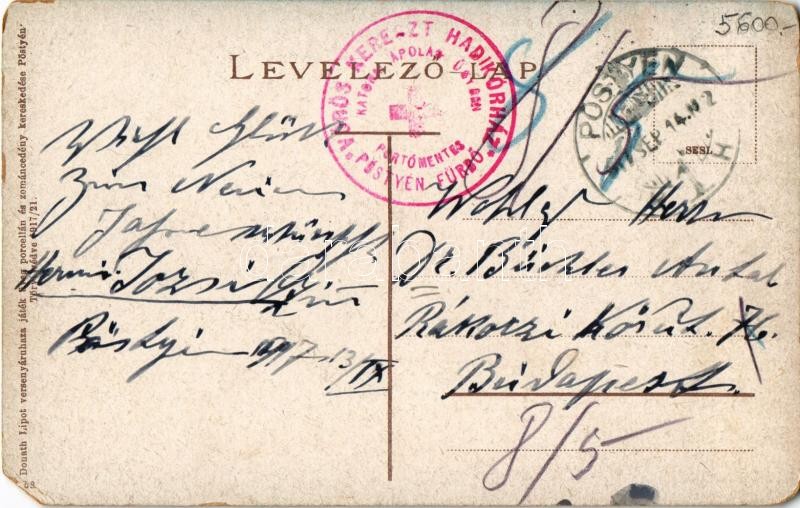 5600.-
LEVELEZŐ-LAP
VÖRÖS KERESZT HADIKÓRHÁZ.
KATONA ÁPOLÁS ÜGYBEN
PORTÓMENTES
PÖSTYÉN FÜRDŐ
PÖSTYÉN
17 SEP 14. N 2
SESL
Viel Glück
zum Neuen
Jahre wünscht
Pöstyén 1917 13/IX
Wohlg. Herrn
Dr. Büchler Antal
Rákoczi Körut. 76.
Budapest.
8/5
Donath Lipót versenyáruháza játék porcellán és zománcedény kereskedése Pöstyén
1917/21.
68.
darabanth